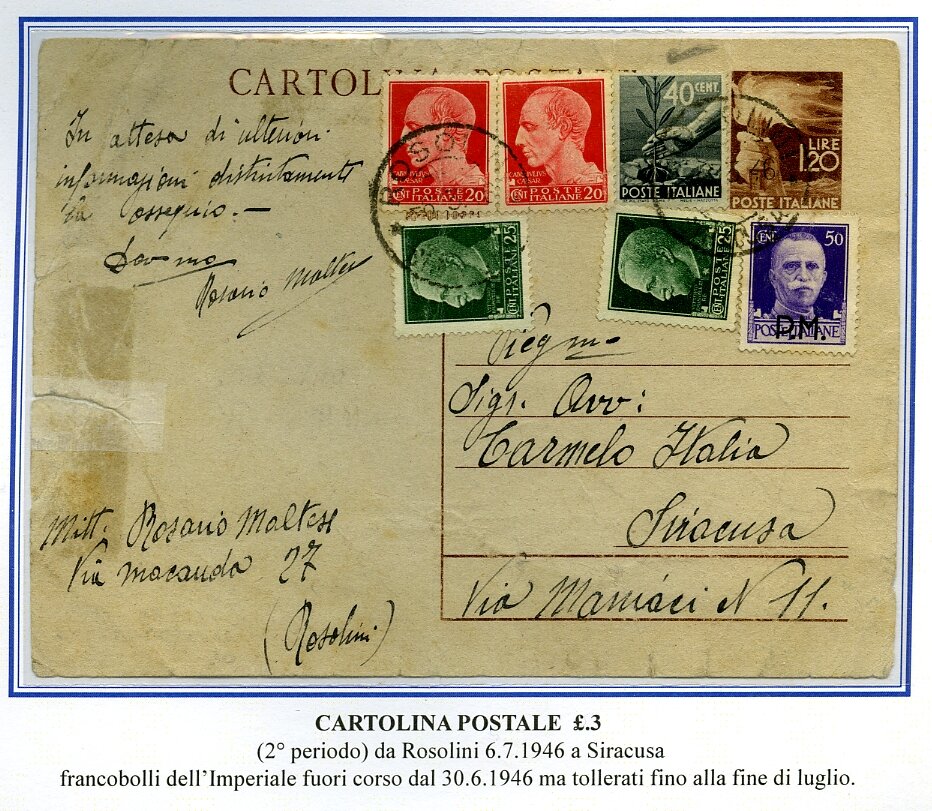 CARTOLINA POSTALE
In attesa di ulteriori
informazioni distintamente
La ossequio. —
Dev mo
Rosario Maltese
CAIVS IVLIVS
CAESAR
CENT POSTE
ITALIANE 20
CAIVS IVLIVS
CAESAR
CENT POSTE
ITALIANE 20
40 CENT.
POSTE ITALIANE
LIRE
1,20
POSTE ITALIANE
ROSO
CENT POSTE
ITALIANE 25
CENT POSTE
ITALIANE 25
CENT 50
POSTE ITALIANE
P.M.
Preg mo
Sigr. Avv:
Carmelo Italia
Siracusa
Via Maniaci N 11.
Mitt. Rosario Maltese
Via macauda 27
(Rosolini)
CARTOLINA POSTALE £.3
(2° periodo) da Rosolini 6.7.1946 a Siracusa
francobolli dell'Imperiale fuori corso dal 30.6.1946 ma tollerati fino alla fine di luglio.